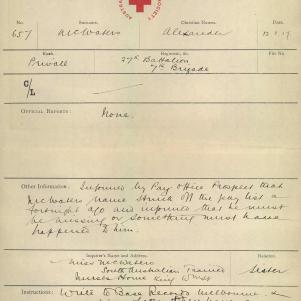 AUSTR
SOCIETY
No. Surname. Christian Names. Date.
657 McWaters Alexander 12.1.17
Rank. Regiment, &c. File No.
Private 27th Battalion
7th Brigade
C/L
OFFICIAL REPORTS: None.
Other Information: Informed by Pay Office Prospect that
McWaters name struck off the pay list a
fortnight ago and informed that he must
be missing or something must have
happened to him.
Inquirer's Name and Address. Relation.
Miss McWaters Sister
South Australian Trained
Nurses Home King
Instructions: Write to Base Records Melbourne